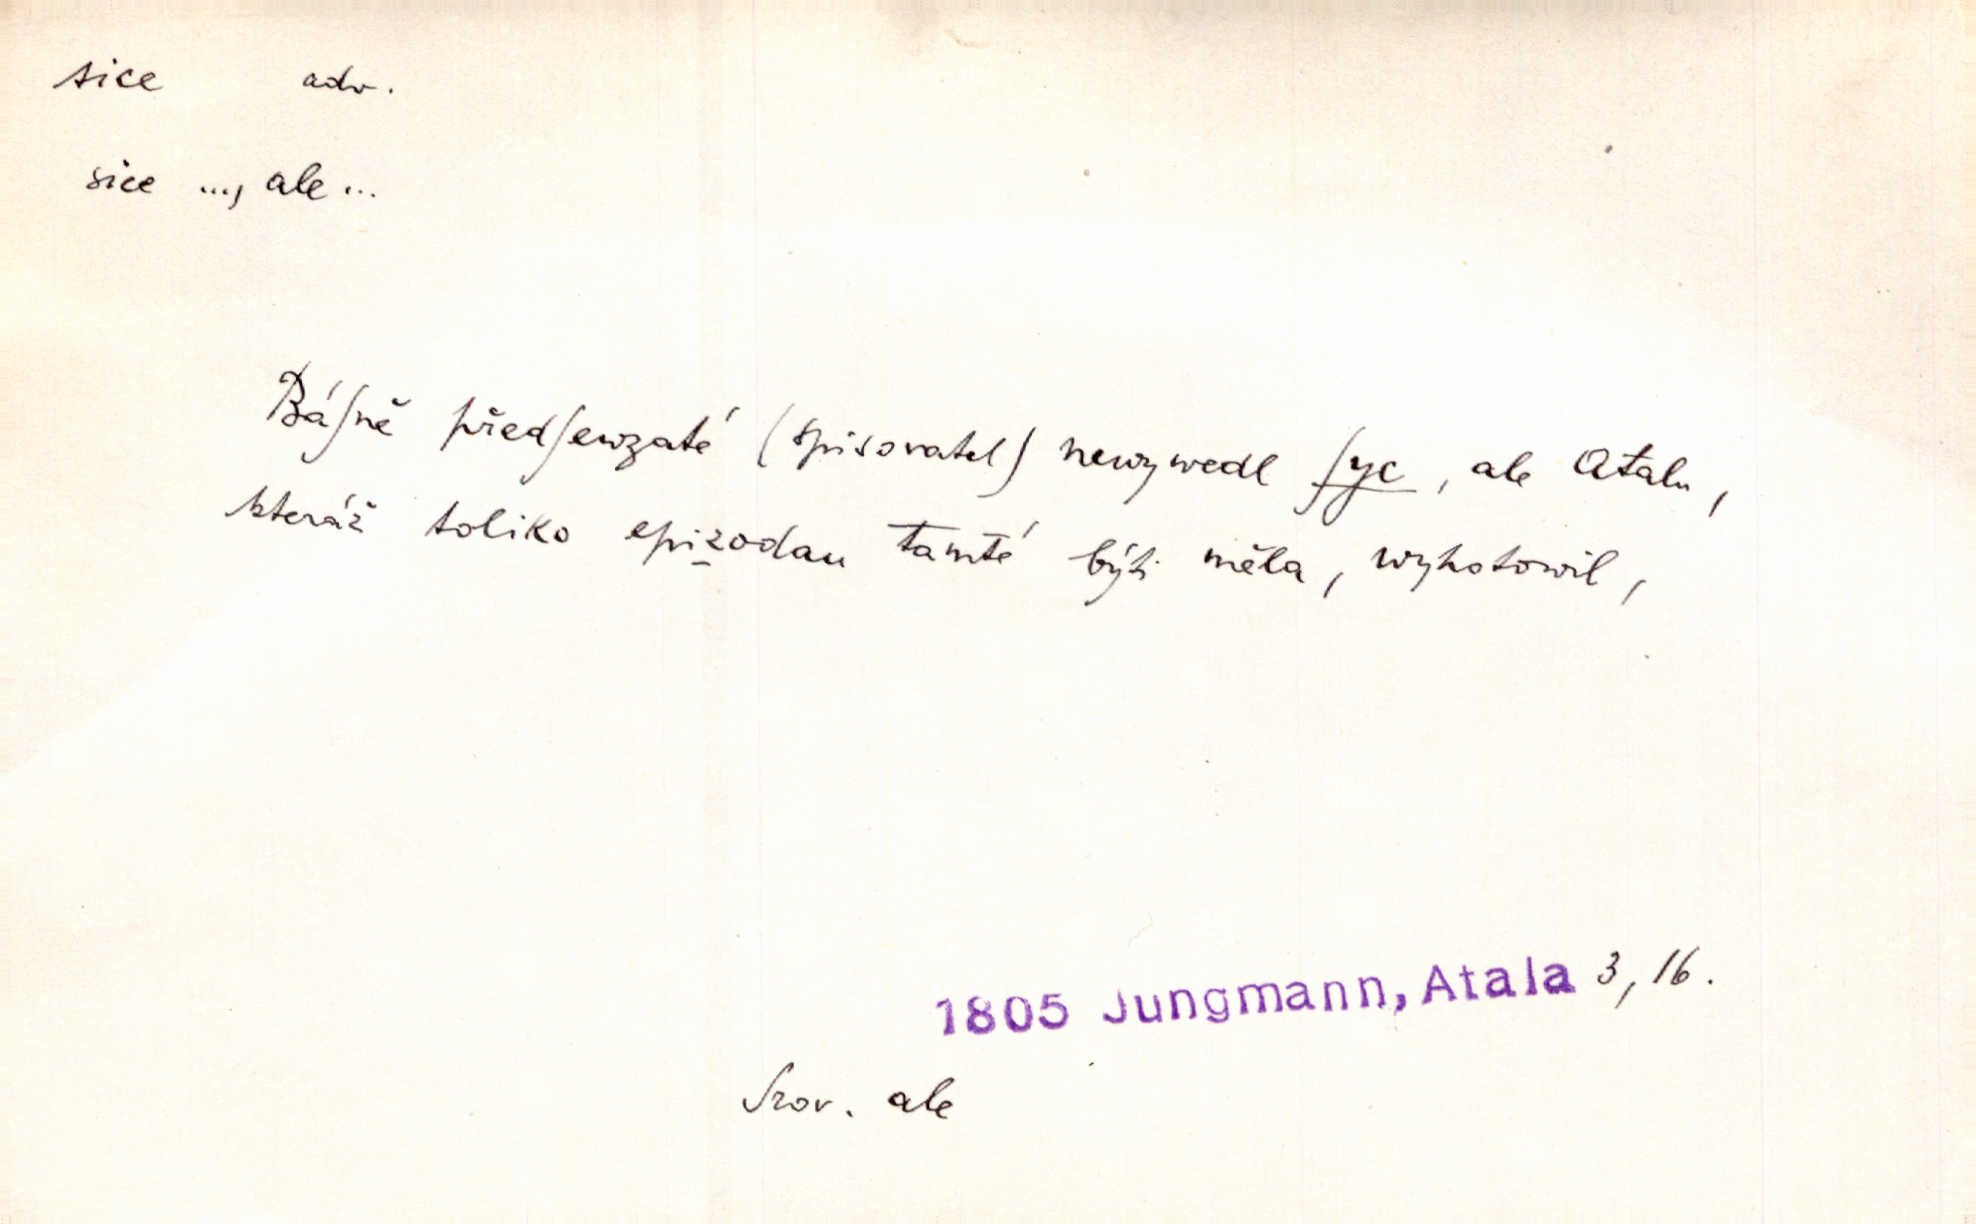 sice adv.
sice ..., ale ...
Báſně předſewzaté (spisovatel) newywedl ſyc, ale Atalu,
kteráž toliko epizodau tamté býti měla, wyhotowil,
1805 Jungmann, Atala 3, 16.
Srov. ale